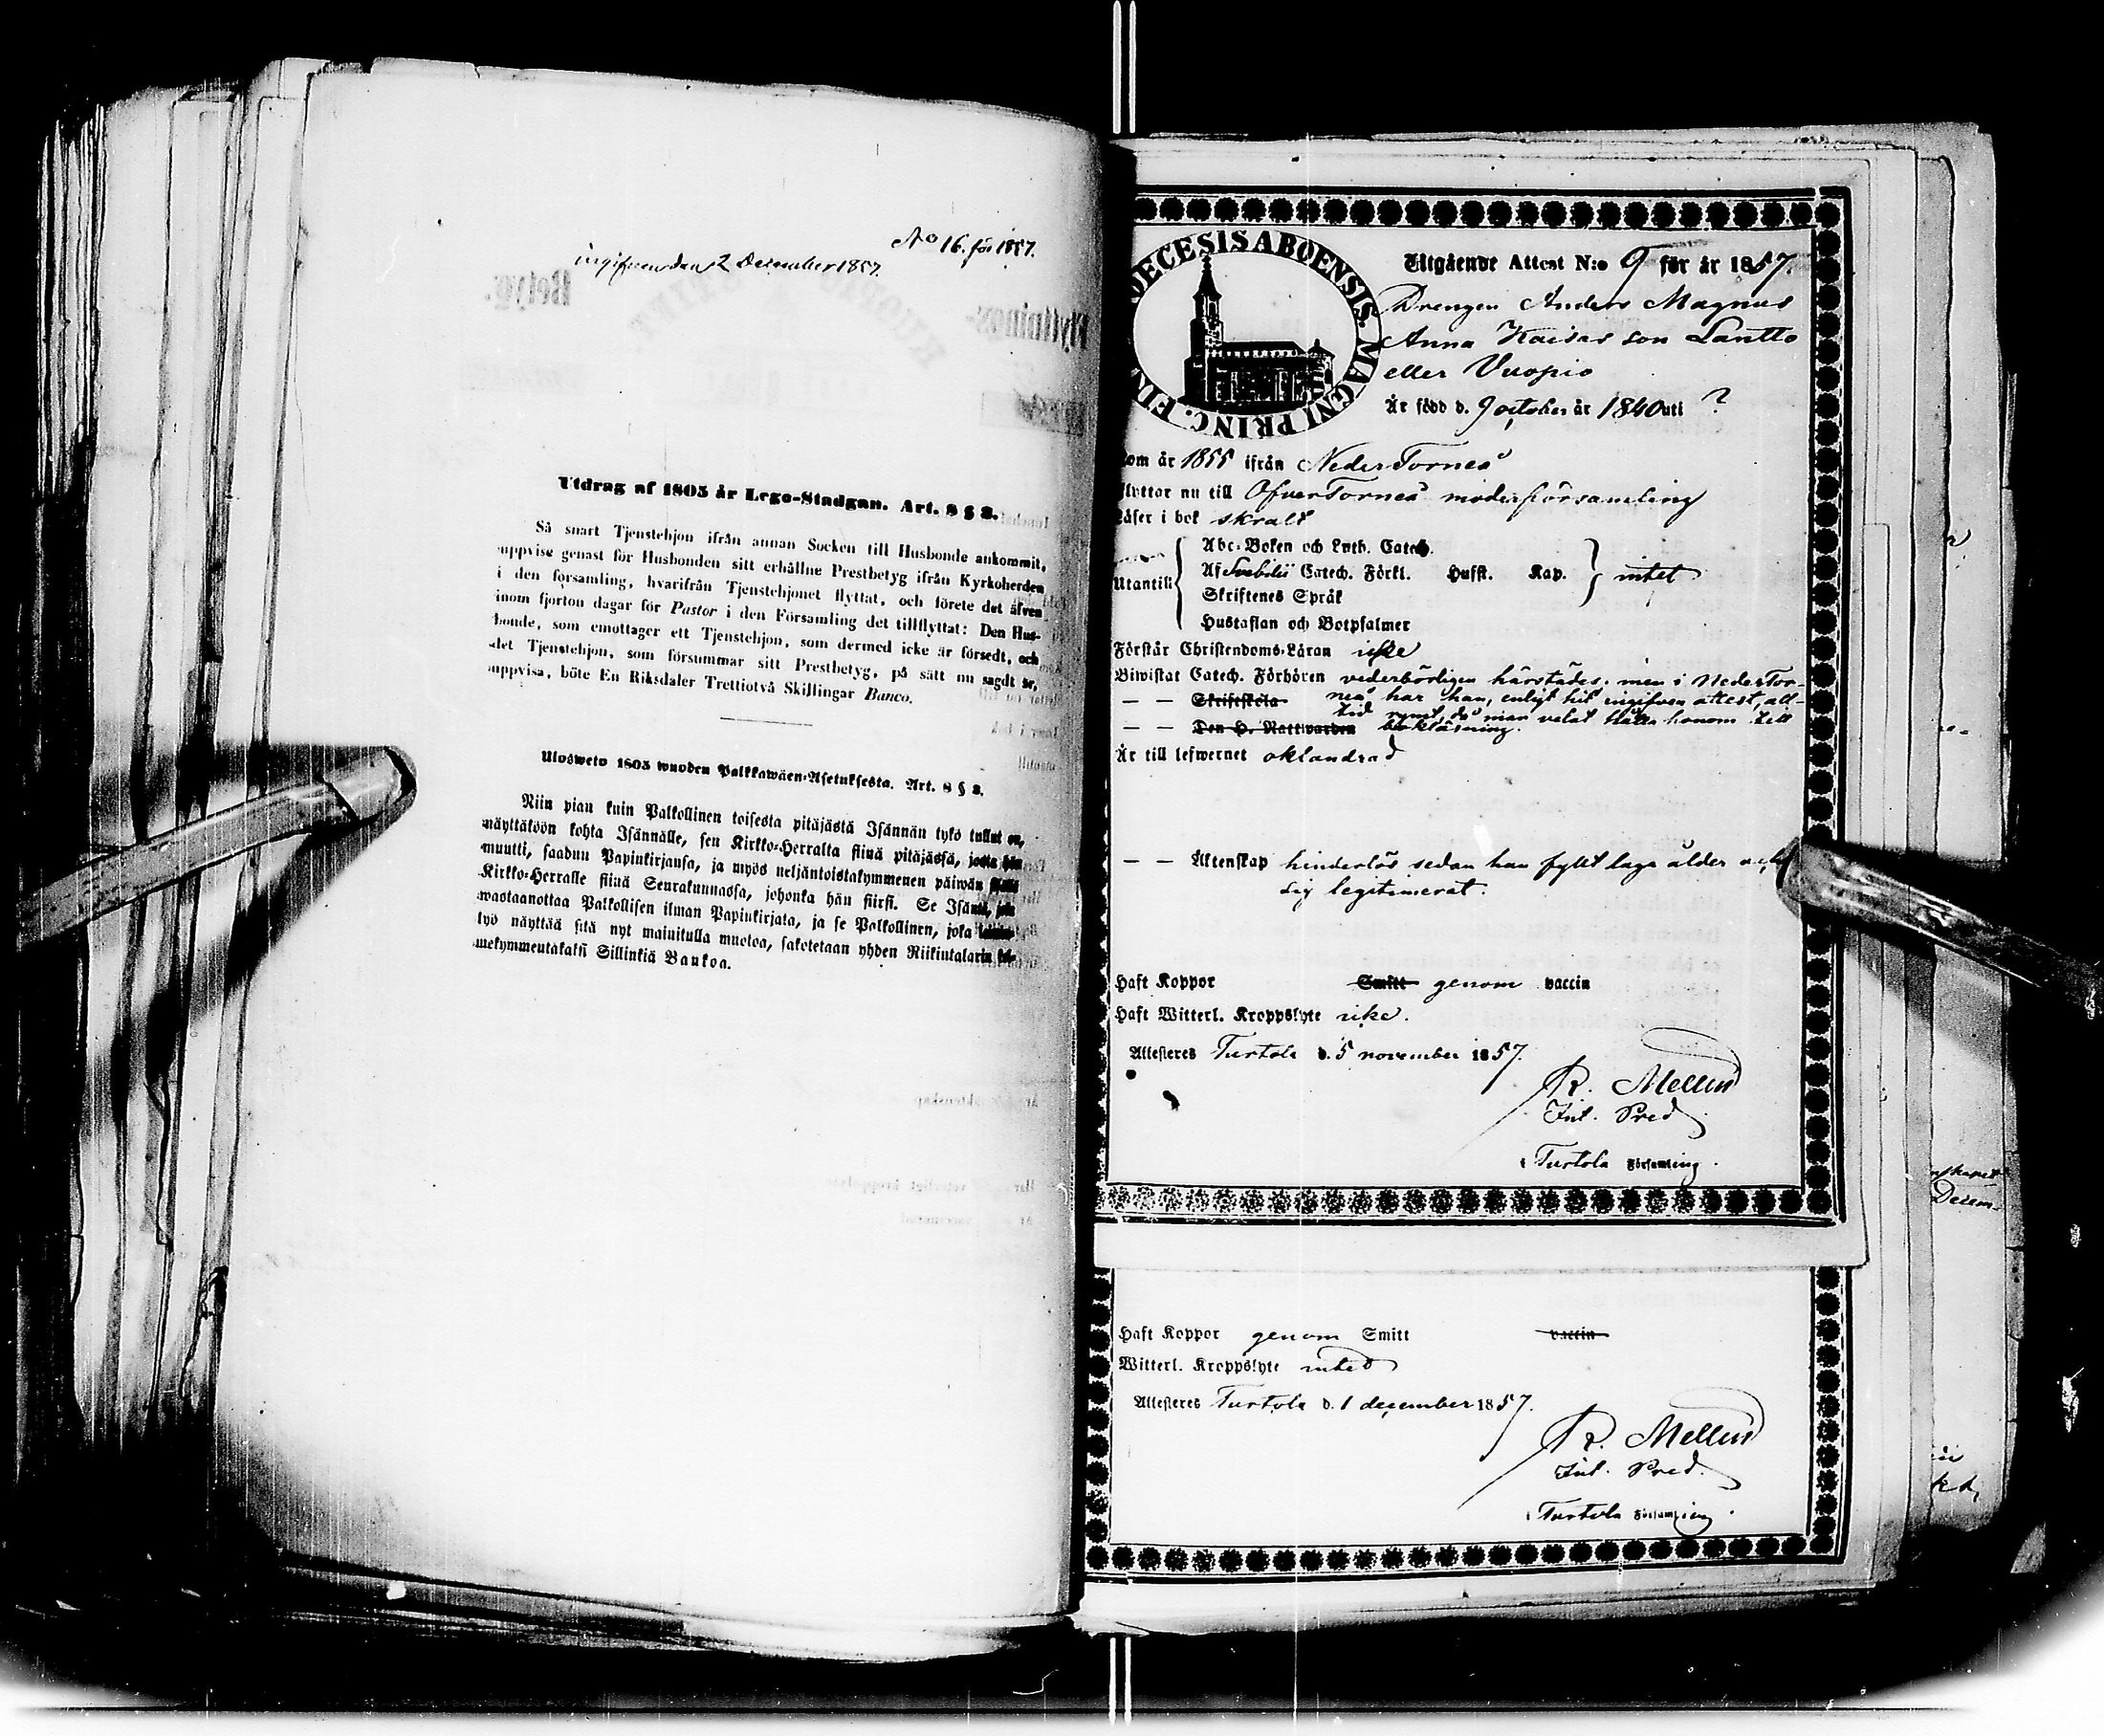 No 16. för 1857.
ingifven den 2 December 1857.
Utdrag af 1805 år Lego-Stadgan. Art. 8 § 3.
Så snart Tjenstehjon ifrån annan Socken till Husbonde ankommit,
uppvise genast för Husbonden sitt erhållne Prestbetyg ifrån Kyrkoherden
i den församling, hvarifrån Tjenstehjonet flyttat, och förete det äfven
inom fjorton dagar för Pastor i den Församling det tillflyttat: Den Hus-
bonde, som emottager ett Tjenstehjon, som dermed icke är försedt, och
det Tjenstehjon, som försummar sitt Prestbetyg, på sätt nu sagdt är,
uppvisa, böte En Riksdaler Trettiotvå Skillingar Banco.
Ulosweto 1805 wuoden Palkkawäen-Asetuksesta. Art. 8 § 3.
Niin pian kuin Palkollinen toisesta pitäjästä Isännän tykö tullut on,
näyttäköön kohta Isännälle, sen Kirkko-Herralta siinä pitäjässä, josta hän
muutti, saadun Papinkirjansa, ja myös neljäntoistakymmenen päiwän
Kirkko-Herralle siinä Seurakunnassa, johonka hän siirsi. Se Isäntä, joka
wastaanottaa Palkollisen ilman Papinkirjata, ja se Palkollinen, joka
työ näyttää sitä nyt mainitulla muotoa, sakotetaan yhden Riikintalarin kol-
mekymmentäkaksi Sillinkiä Bankoa.
DIOECESIS ABOENSIS. MAGNI PRINC. FIN
Utgående Attest N:o 9 för år 1857.
Drengen Anders Magnus
Anna Kaisas son Lantto
eller Vuopio
Är född d. 9 october år 1840 uti ?
Kom år 1855 ifrån NederTorneå
Flyttar nu till ÖfverTorneå moderförsamling
Läser i bok skralt
Utantill
Abc-Boken och Luth. Catech.
Af Svebilii Catech. Förkl. Husst. Kap. intet
Skriftenes Språk
Hustaflan och Botpsalmer
Förstår Christendoms-Läran icke
Biwistat Catech. Förhören vederbörligen härstädes; men i NederTor-
neå har han, enligt hit ingifven attest, all-
— — Skriftskola
tid rymt, då man velat ställa honom till
— — Den H. Nattwarden bokläsning.
Är till lefwernet oklandrad
— — Äktenskap hinderlös sedan han fyllt laga ålder och
sig legitimerat.
Haft Koppor Smitt genom vaccin
Haft Witterl. Kroppslyte icke.
Attesteres Turtola d. 5 november 1857.
R. Mellin
Int. Pred.
i Turtola Församling.
Haft Koppor genom Smitt vaccin
Witterl. Kroppslyte intet
Attesteres Turtola d. 1 december 1857.
R. Mellin
Int. Pred.
i Turtola Församling.